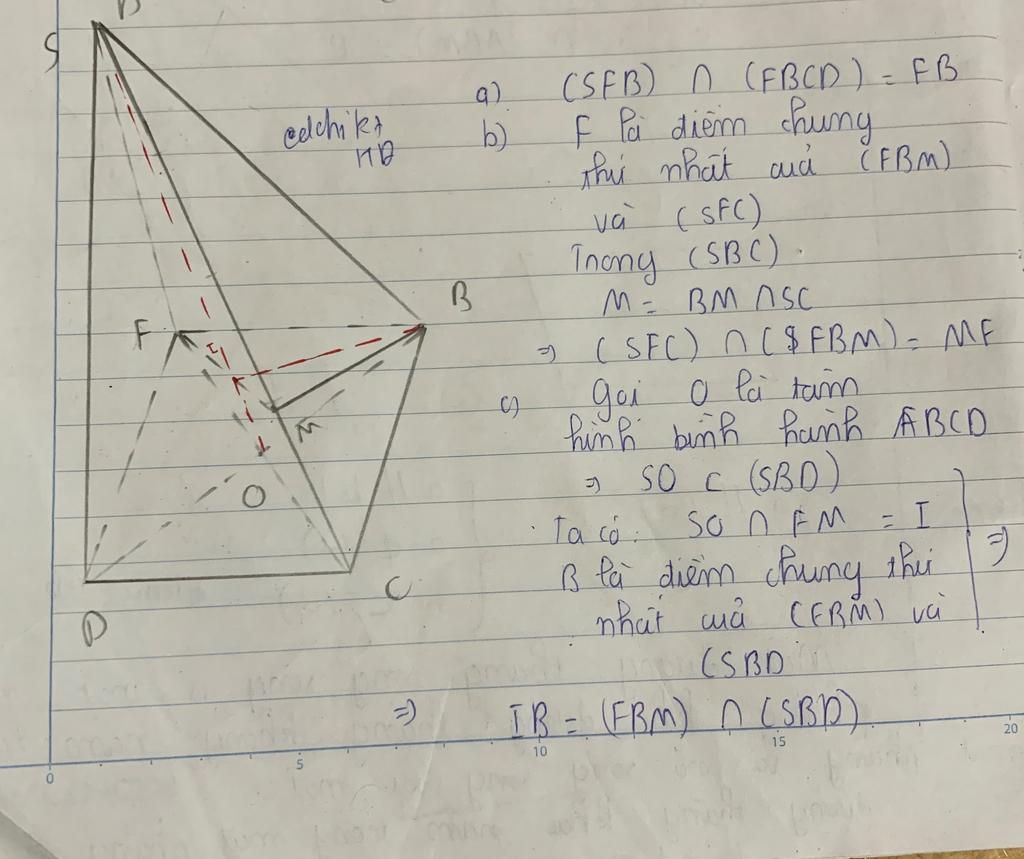 S
a) (SFB) ∩ (FBCD) = FB
b) F là điểm chung
thứ nhất của (FBM)
và (SFC)
Trong (SBC)
M = BM ∩ SC
=> (SFC) ∩ (FBM) = MF
c) gọi O là tâm
hình bình hành ABCD
=> SO ⊂ (SBD)
Ta có: SO ∩ FM = I
=>
B là điểm chung thứ
nhất của (FBM) và
(SBD
=> IB = (FBM) ∩ (SBD)
B
F
I
M
O
C
D
0 5 10 15 20